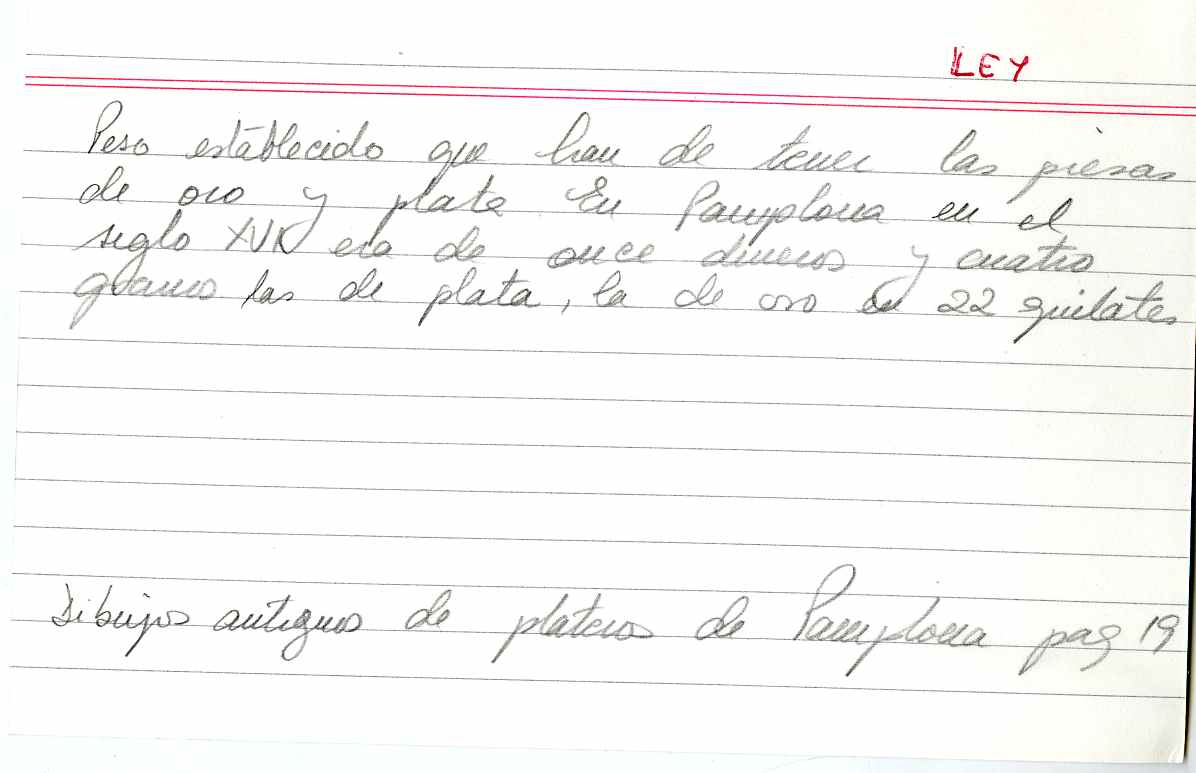 LEY
Peso establecido que han de tener las piesas
de oro y plata En Pamplona en el
siglo era de once dineros y cuatro
granos las de plata, la de oro 22 quilates
Dibujos antiguos de plateros de Pamplona pag 19